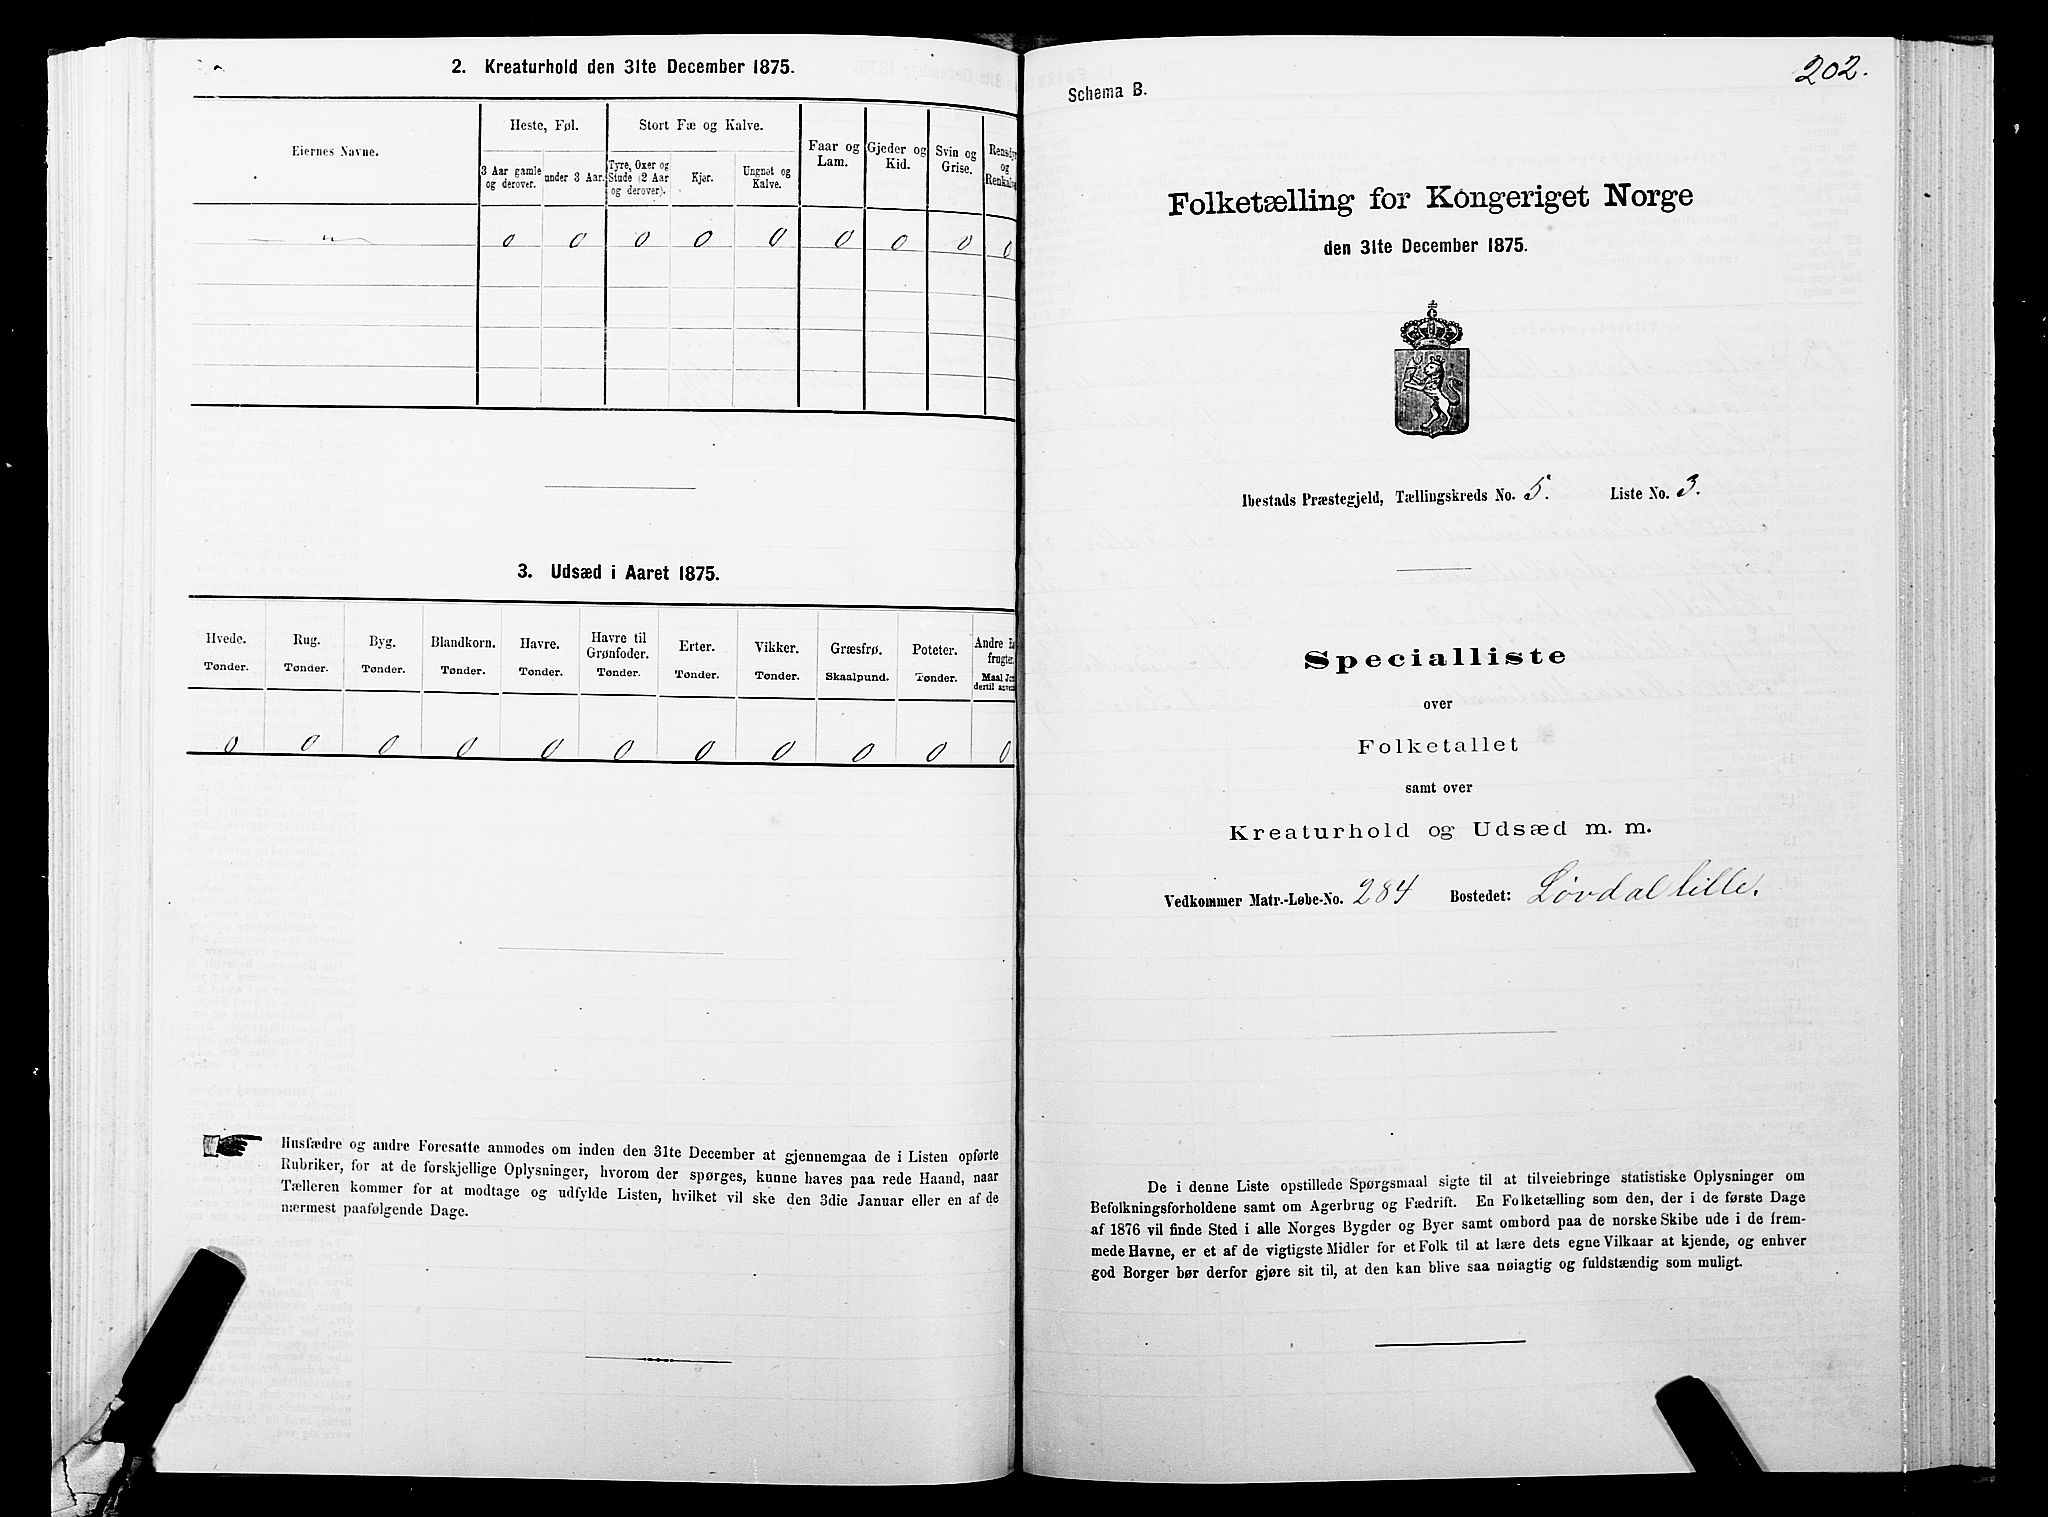 2. Kreaturhold den 31te December 1875.
Eiernes Navne.
Heste, Føl.
Stort Fæ og Kalve.
Faar og Lam.
Gjeder og Kid.
Svin og Grise.
Rensdyr og Renkalve
3 Aar gamle og derover.
under 3 Aar.
Tyre, Oxer og Stude (2 Aar og derover).
Kjør.
Ungnøt og Kalve.
— " — 0 0 0 0 0 0 0 0 0
3. Udsæd i Aaret 1875.
Hvede. Rug. Byg. Blandkorn. Havre. Havre til Grønfoder. Erter. Vikker. Græsfrø. Poteter. Andre
frugter.
Tønder. Tønder. Tønder. Tønder. Tønder. Tønder. Tønder. Tønder. Skaalpund. Tønder. Maal
dertil
0 0 0 0 0 0 0 0 0 0 0
Husfædre og andre Foresatte anmodes om inden den 31te December at gjennemgaa de i Listen opførte
Rubriker, for at de forskjellige Oplysninger, hvorom der spørges, kunne haves paa rede Haand, naar
Tælleren kommer for at modtage og udfylde Listen, hvilket vil ske den 3die Januar eller en af de
nærmest paafølgende Dage.
202.
Schema B.
Folketælling for Kongeriget Norge
den 31te December 1875.
Ibestads Præstegjeld, Tællingskreds No. 5. Liste No. 3.
Specialliste
over
Folketallet
samt over
Kreaturhold og Udsæd m. m.
Vedkommer Matr.-Løbe-No. 284 Bostedet: Løvdal lille.
De i denne Liste opstillede Spørgsmaal sigte til at tilveiebringe statistiske Oplysninger om
Befolkningsforholdene samt om Agerbrug og Fædrift. En Folketælling som den, der i de første Dage
af 1876 vil finde Sted i alle Norges Bygder og Byer samt ombord paa de norske Skibe ude i de frem-
mede Havne, er et af de vigtigste Midler for et Folk til at lære dets egne Vilkaar at kjende, og enhver
god Borger bør derfor gjøre sit til, at den kan blive saa nøiagtig og fuldstændig som muligt.